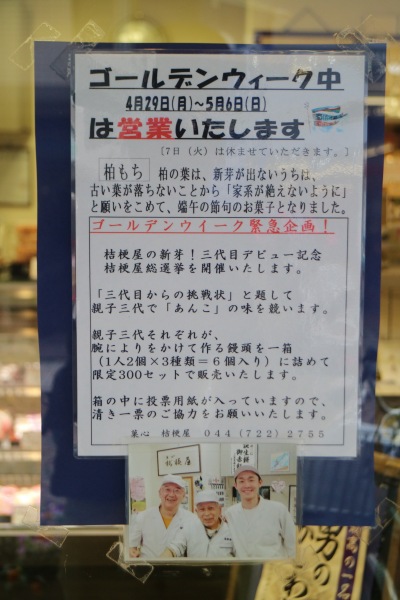 ゴールデンウィーク中
4月29日(月)～5月6日(日)
は営業いたします
〔7日(火)は休ませていただきます。〕
柏もち 柏の葉は、新芽が出ないうちは、
古い葉が落ちないことから「家系が絶えないように」
と願いをこめて、端午の節句のお菓子となりました。
ゴールデンウイーク緊急企画！
桔梗屋の新芽！三代目デビュー記念
桔梗屋総選挙を開催いたします。
「三代目からの挑戦状」と題して
親子三代で「あんこ」の味を競います。
親子三代それぞれが、
腕によりをかけて作る饅頭を一箱
(1人2個×3種類＝6個入り)に詰めて
限定300セットで販売いたします。
箱の中に投票用紙が入っていますので、
清き一票のご協力をお願いいたします。
菓心 桔梗屋 044(722)2755